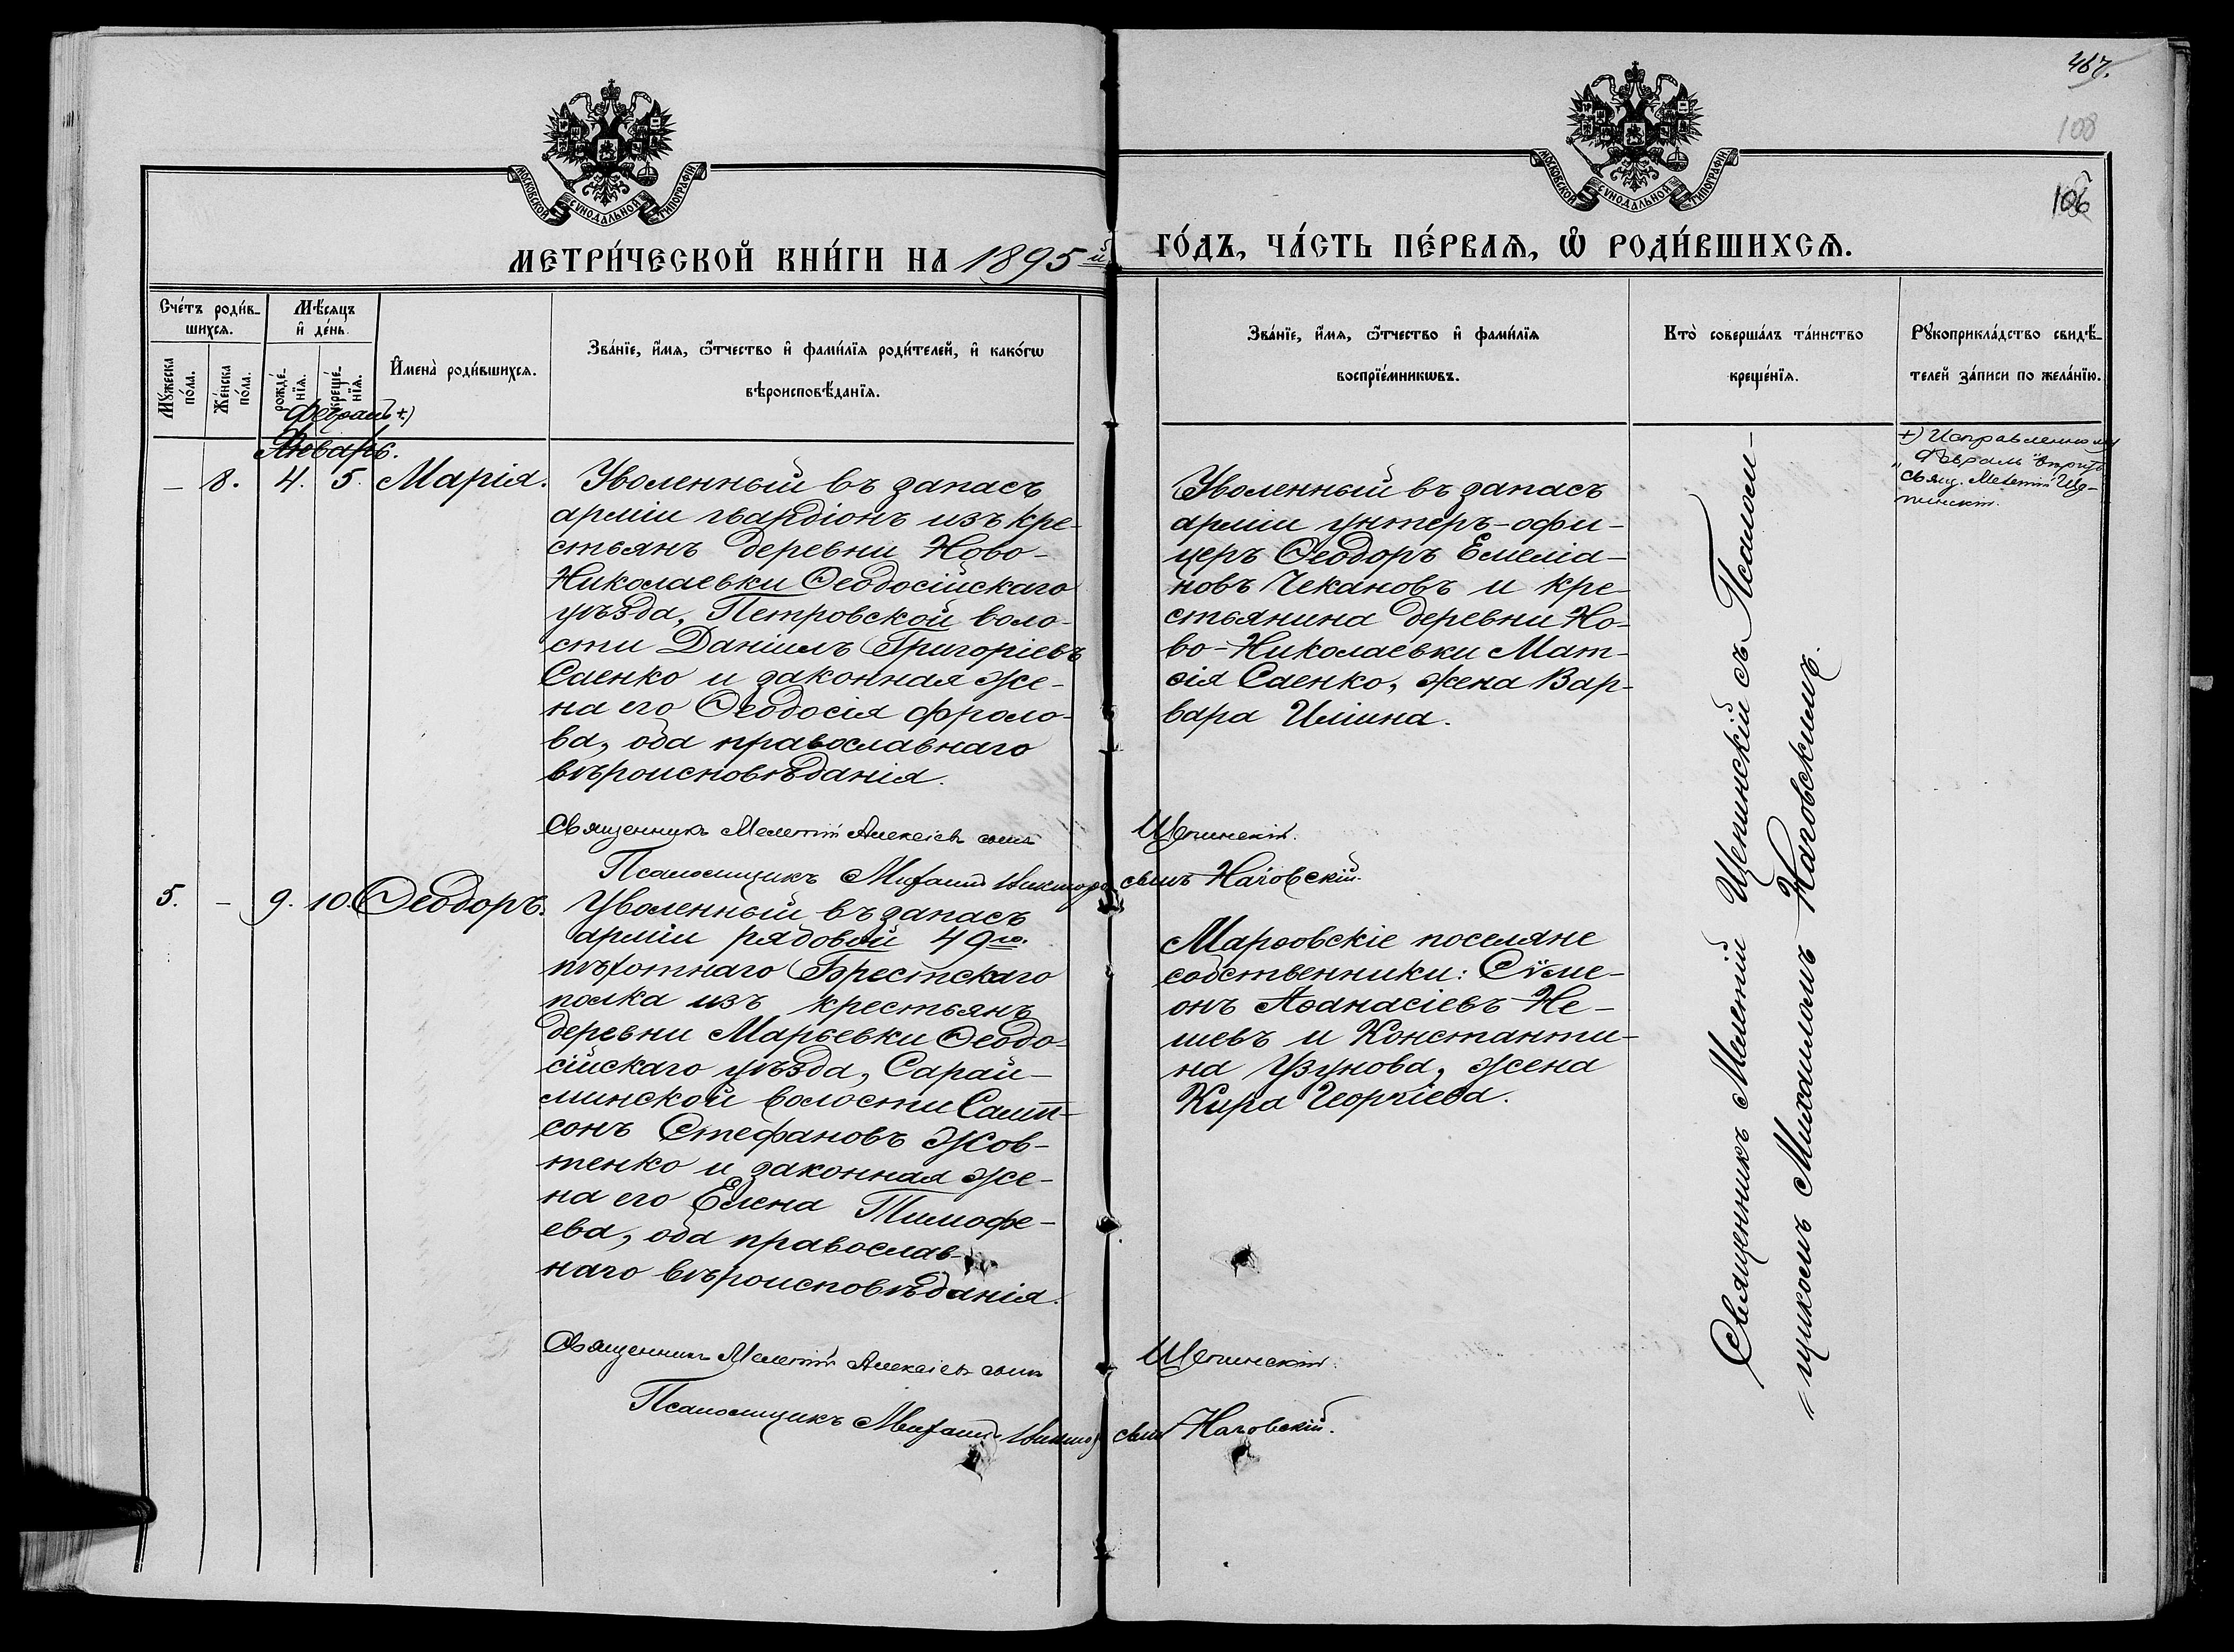 467.
108
106
МОСКОВСКОЙ СУНОДАЛЬНОЙ ТИПОГРАФІИ
МОСКОВСКОЙ СУНОДАЛЬНОЙ ТИПОГРАФІИ
МЕТРИ́ЧЕСКОЙ КНИ́ГИ НА 1895й ГО́ДЪ, ЧА́СТЬ ПЕ́РВАѦ, Ѡ҆ РОДИ́ВШИХСѦ.
Сче́тъ роди́в-
шихсѧ.
Мꙋжеска
по́ла.
Же́нска
по́ла.
Мѣ́сѧцъ
и҆ де́нь.
рожде́-
нїѧ.
креще́-
нїѧ.
И҆мена̀ роди́вшихсѧ.
Зва́нїе, и҆́мѧ, ѻ҆́тчество и҆ фами́лїѧ роди́телей, и҆ како́гѡ
вѣроисповѣ́данїѧ.
Зва́нїе, и҆́мѧ, ѻ҆́тчество и҆ фами́лїѧ
воспрїе́мникѡвъ.
Кто̀ соверша́лъ та́инство
креще́нїѧ.
Рꙋкоприкла́дство свидѣ́-
телей за́писи по жела́нїю.
Февраль +)
Январь.
— 8. 4. 5. Марія.
Уволенный въ запасъ
арміи гвардіонъ изъ кре-
стьянъ деревни Ново-
Николаевки Ѳеодосійскаго
уѣзда, Петровской воло-
сти Даніилъ Григоріевъ
Саенко и законная же-
на его Ѳеодосія Фроло-
ва, оба православнаго
вѣроисповѣданія.
Уволенный въ запасъ
арміи унтеръ-офи-
церъ Ѳеодоръ Емеліа-
новъ Чекановъ и кре-
стьянина деревни Но-
во-Николаевки Мат-
ѳія Саенко, жена Вар-
вара Иліина.
+) Исправленному
"Февраль" вѣрить
Свящ. Мелетій Ще-
пинскій.
Священникъ Мелетій Алексіевъ сынъ Щепинскій.
Псаломщикъ Михаилъ Викторов сынъ Наговскій.
5. — 9. 10. Ѳеодоръ.
Уволенный въ запасъ
арміи рядовой 49го.
пѣхотнаго Брестскаго
полка изъ крестьянъ
деревни Марьевки Ѳеодо-
сійскаго уѣзда, Сарай-
минской волости Самп-
сонъ Стефановъ Жов-
тенко и законная же-
на его Елена Тимофе-
ева, оба православ-
наго вѣроисповѣданія.
Марѳовскіе поселяне
собственники: Сѵме-
онъ Аѳанасіевъ Не-
шевъ и Константи-
на Узунова, жена
Кира Георгіева.
Священникъ Мелетій Алексіевъ сынъ Щепинскій.
Псаломщикъ Михаилъ Виктор сынъ Наговскій.
Священникъ Мелетій Щепинскій съ Псалом-
щикомъ Михаиломъ Наговскимъ.